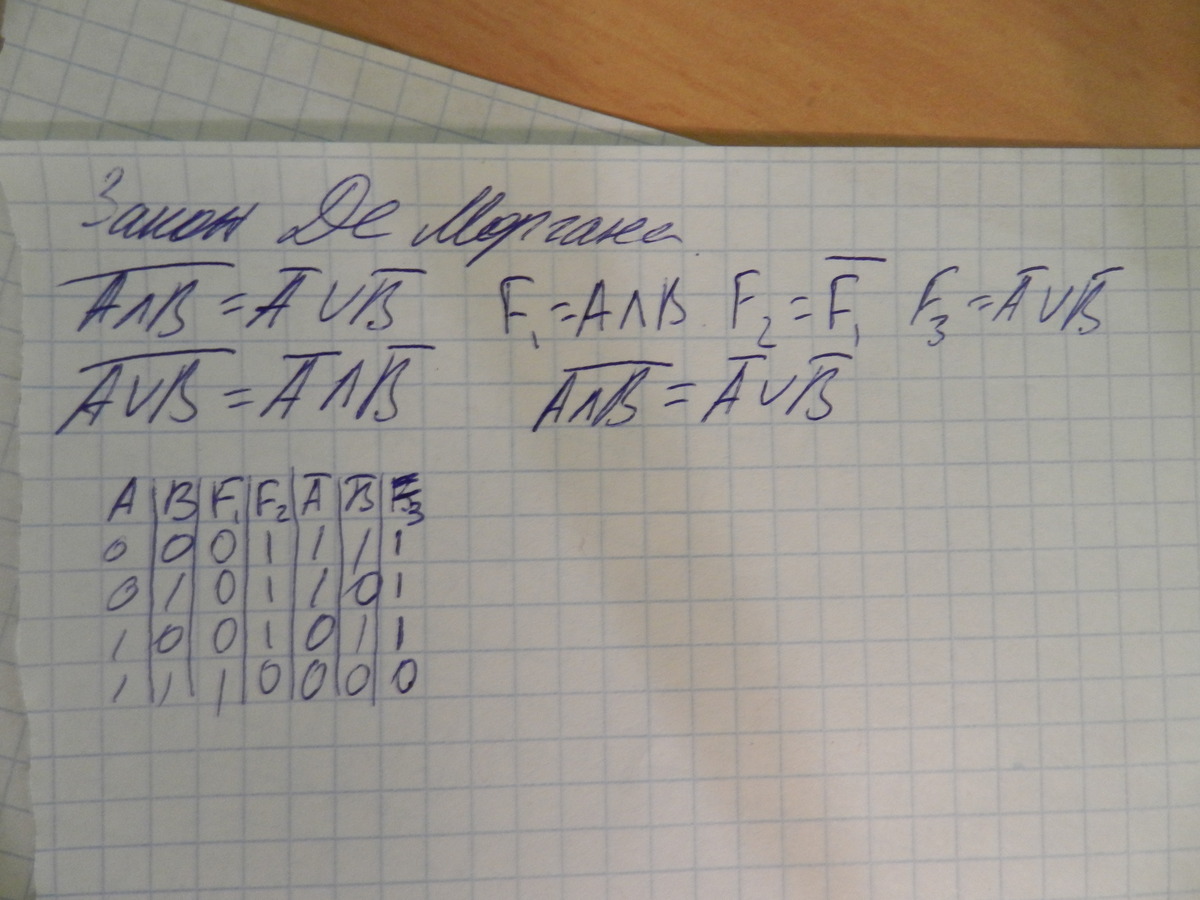 Закон Де Моргана
A̅∧̅B̅ = A̅ ∨ B̅ F₁ = A ∧ B F₂ = F̅₁ F₃ = A̅ ∨ B̅
A̅∨̅B̅ = A̅ ∧ B̅ A̅∧̅B̅ = A̅ ∨ B̅
A B F₁ F₂ A̅ B̅ F₃
0 0 0 1 1 1 1
0 1 0 1 1 0 1
1 0 0 1 0 1 1
1 1 1 0 0 0 0